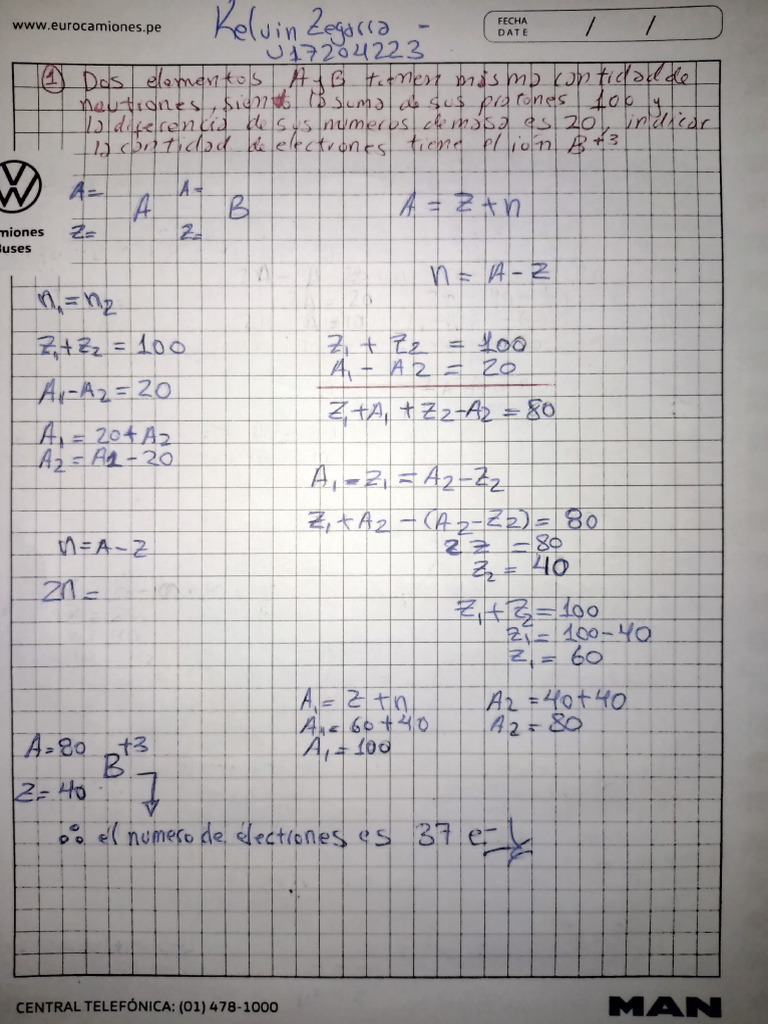 www.eurocamiones.pe
Kelvin Zegarra -
U17204223
FECHA
DATE / /
① Dos elementos A y B tienen misma cantidad de
neutrones, siendo la suma de sus protones 100 y
la diferencia de sus numeros de masa es 20, indicar
la cantidad de electrones tiene el ión B+3
miones
Buses
A= A A= B
Z= Z=
A = Z + n
n = A - Z
n₁ = n₂
Z₁+Z₂ = 100
A₁-A₂ = 20
A₁ = 20+A₂
A₂ = A1 - 20
n = A - Z
2n =
Z₁ + Z₂ = 100
A₁ - A2 = 20
Z₁+A₁ + Z2-A2 = 80
A₁ - Z₁ = A2-Z2
Z₁+A2 - (A2-Z2) = 80
2 Z = 80
Z₂ = 40
Z₁ + Z₂ = 100
Z₁ = 100-40
Z₁ = 60
A₁ = Z + n
A₁ = 60 + 40
A₁ = 100
A2 = 40+40
A2 = 80
A=80 +3
B
Z= 40
∴ el numero de electrones es 37 e-
CENTRAL TELEFÓNICA: (01) 478-1000
MAN